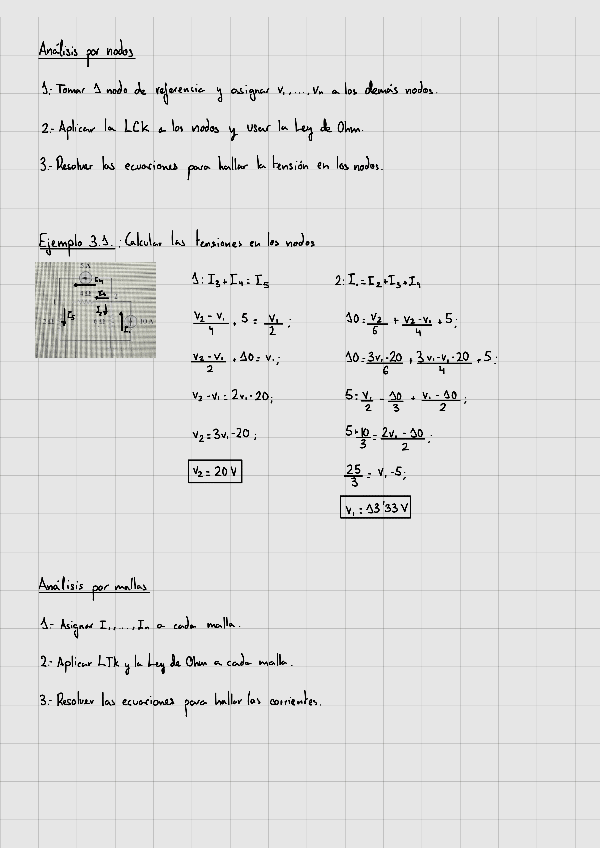 Análisis por nodos
1.- Tomar 1 nodo de referencia y asignar v₁,...,vₙ a los demás nodos.
2.- Aplicar la LCK a los nodos y usar la Ley de Ohm.
3.- Resolver las ecuaciones para hallar la tensión en los nodos.
Ejemplo 3.1.: Calcular las tensiones en los nodos
1: I₃ + I₄ = I₅
(v₂ - v₁)/4 + 5 = v₁/2;
(v₂ - v₁)/2 + 10 = v₁;
v₂ - v₁ = 2v₁ - 20;
v₂ = 3v₁ - 20;
v₂ = 20 V
2: I₁ = I₂ + I₃ + I₄
10 = v₂/6 + (v₂ - v₁)/4 + 5;
10 = (3v₁ - 20)/6 + (3v₁ - v₁ - 20)/4 + 5;
5 = v₁/2 - 10/3 + (v₁ - 10)/2;
5 + 10/3 = (2v₁ - 10)/2;
25/3 = v₁ - 5;
v₁ = 13'33 V
Análisis por mallas
1.- Asignar I₁,...,Iₙ a cada malla.
2.- Aplicar LTK y la Ley de Ohm a cada malla.
3.- Resolver las ecuaciones para hallar las corrientes.